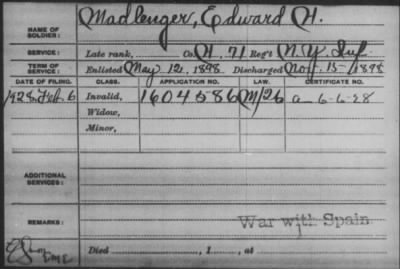 NAME OF SOLDIER: Madlenger, Edward H.
SERVICE: Late rank, Co. H, 71 Reg't N.Y. Inf.
TERM OF SERVICE: Enlisted May 12, 1898 Discharged Nov. 15-1898
DATE OF FILING. CLASS. APPLICATION NO. LAW. CERTIFICATE NO.
1928 Feb. 6 Invalid, 1604586 M/26 a 6-6-28
Widow,
Minor,
ADDITIONAL SERVICES:
REMARKS: War with Spain
Died , 1 , at